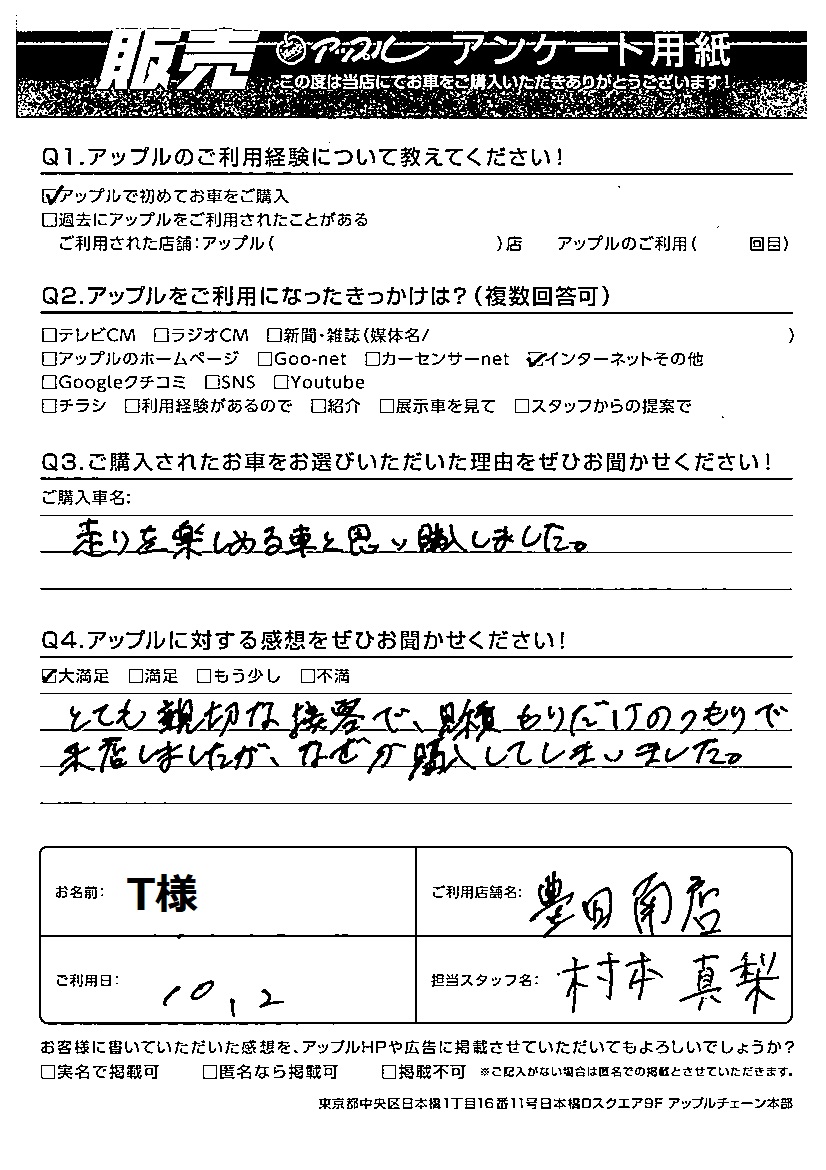 販売 アップル アンケート用紙
この度は当店にてお車をご購入いただきありがとうございます!
Q1.アップルのご利用経験について教えてください!
☑アップルで初めてお車をご購入
□過去にアップルをご利用されたことがある
ご利用された店舗:アップル( )店 アップルのご利用( 回目)
Q2.アップルをご利用になったきっかけは?(複数回答可)
□テレビCM □ラジオCM □新聞・雑誌(媒体名/ )
□アップルのホームページ □Goo-net □カーセンサーnet ☑インターネットその他
□Googleクチコミ □SNS □Youtube
□チラシ □利用経験があるので □紹介 □展示車を見て □スタッフからの提案で
Q3.ご購入されたお車をお選びいただいた理由をぜひお聞かせください!
ご購入車名:
走りを楽しめる車と思い購入しました。
Q4.アップルに対する感想をぜひお聞かせください!
☑大満足 □満足 □もう少し □不満
とても親切な接客で、見積もりだけのつもりで
来店しましたが、なぜか購入してしまいました。
お名前: T様 ご利用店舗名: 豊田南店
ご利用日: 10,2 担当スタッフ名: 村本 真梨
お客様に書いていただいた感想を、アップルHPや広告に掲載させていただいてもよろしいでしょうか?
□実名で掲載可 □匿名なら掲載可 □掲載不可 ※ご記入がない場合は匿名での掲載とさせていただきます。
東京都中央区日本橋1丁目16番11号日本橋Dスクエア9F アップルチェーン本部